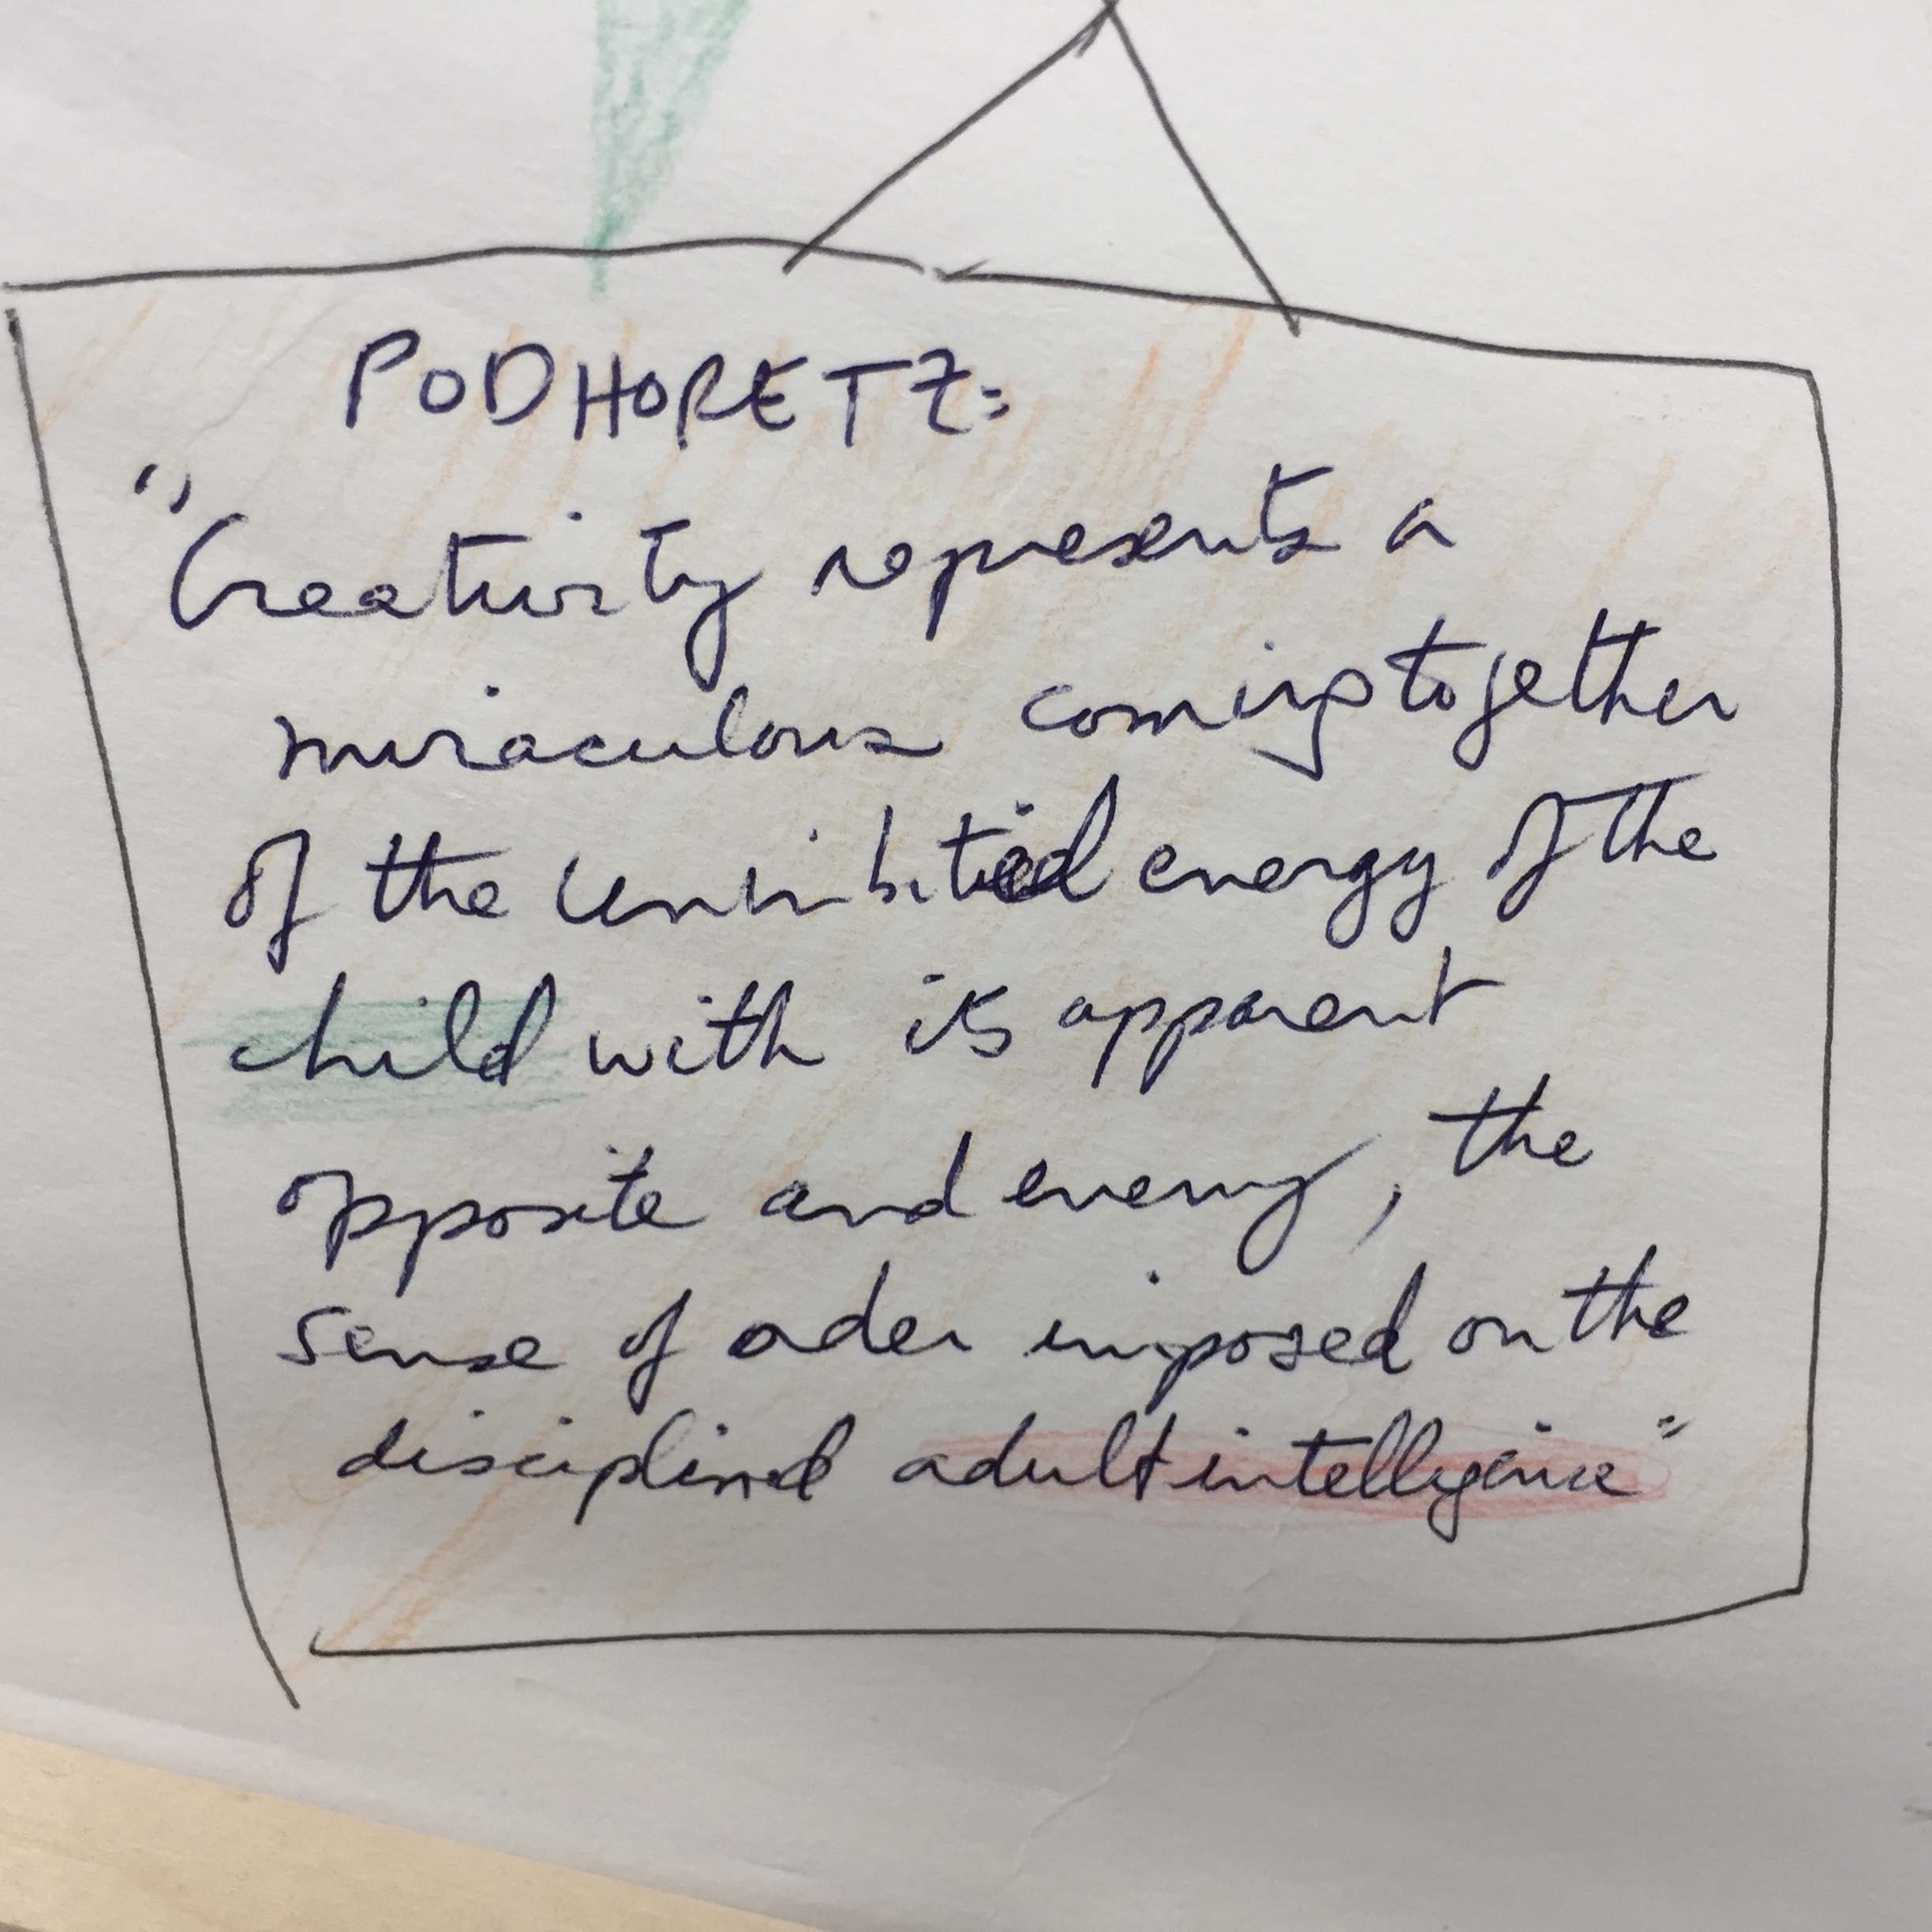 PODHORETZ:
"Creativity represents a
miraculous coming together
of the uninibitied energy of the
child with its apparent
opposite and enemy, the
sense of order imposed on the
disciplined adult intelligence"